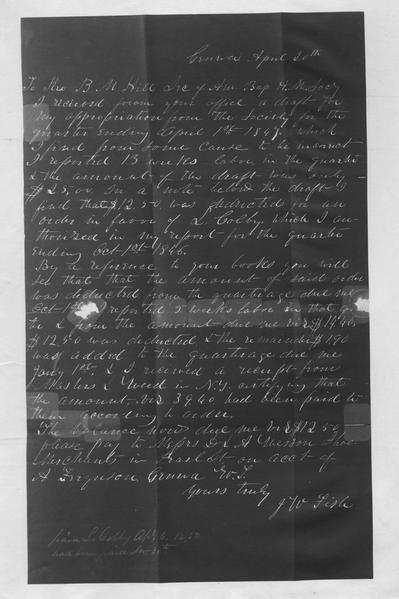 Geneva April 20th
To Rev B. M. Hill Sec of Am Bap H. M. Socy
I received from your office a draft for
my appropriation from the Society for the
quarter Ending April 1st 1847. which
I find from some cause to be incorrect
I reported 13 weeks labor in the quarter
& the amount of the draft was only
$25,00. In a note below the draft I
find that $12.50 was deducted for an
order in favor of L. Colby which I au-
thorized in my report for the quarter
Ending Oct 1st 1846.
By a reference to your books you will
see that that the amount of said order
was deducted from the quarterage due me
Oct 1st reported 5 weeks labor in that quar
ter & from the amount due me viz $14,40
$12.50 was deducted & the remainder $1.90
was added to the quarterage due me
Jany 1st. & I received a receipt from
Masters & Weed in N.Y. certifying that
the amount viz 39,40 had been paid to
them according to order.
The balance now due me viz $12.50
please pay to Messrs D & A
Merchants in Pearl St on acct of
A Ferguson Geneva W.T.
Yours truly
J W Fish
L. Colby Apl 6. 12,50